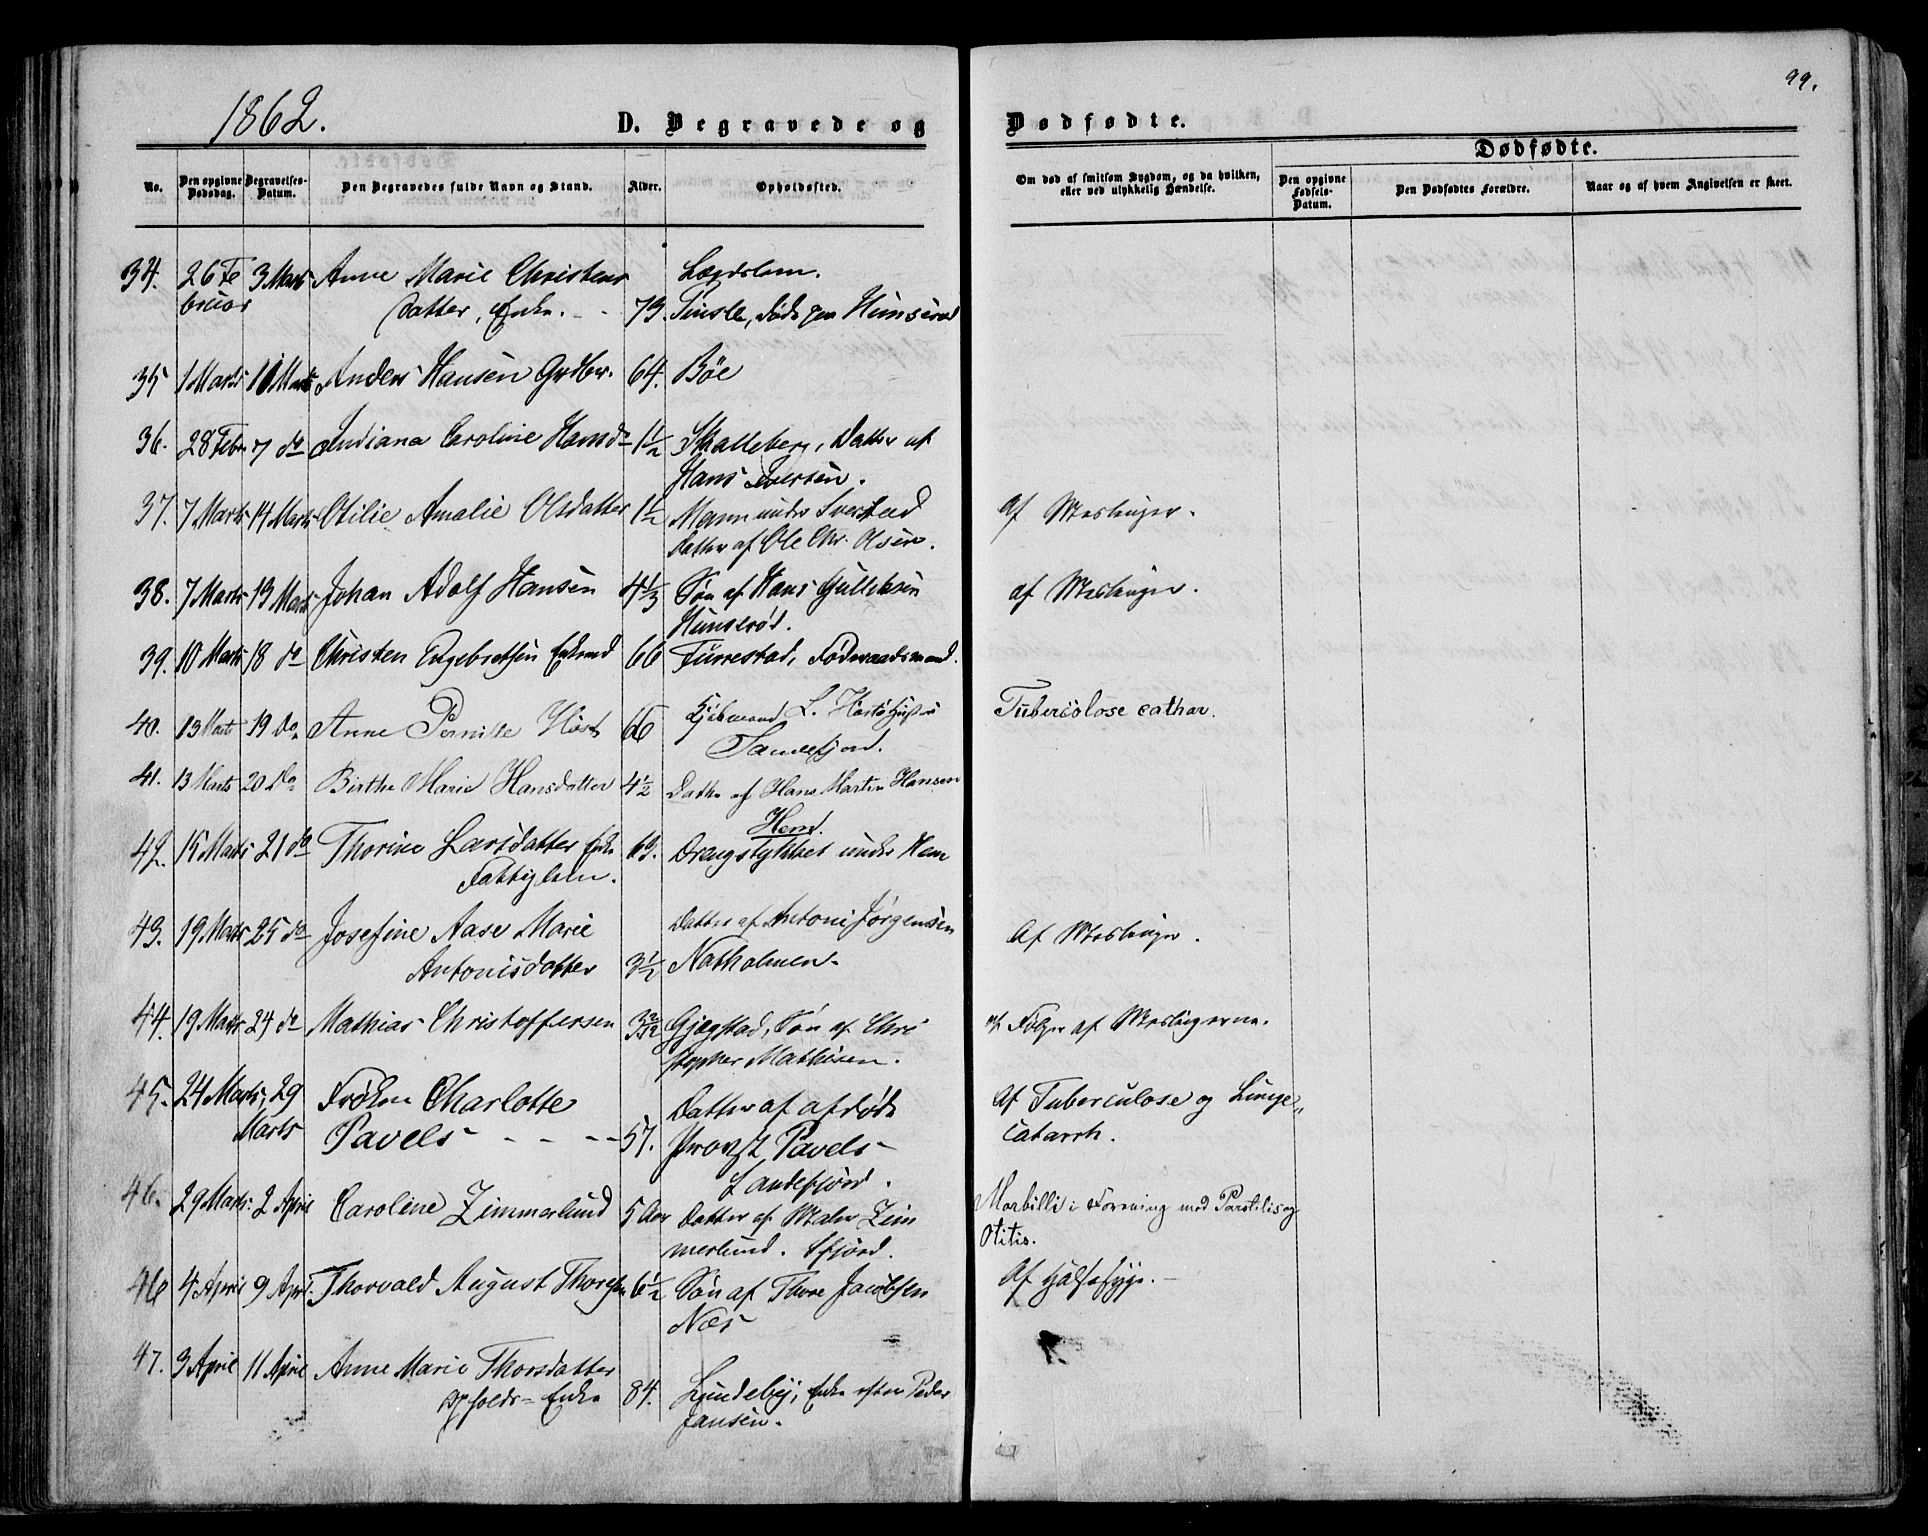 1862.
D. Begravede og
Dødfødte.
99.
No.
Den opgivne Dødsdag.
Begravelses-Datum.
Den Begravedes fulde Navn og Stand.
Alder.
Opholdssted.
Om død af smitsom Sygdom, og da hvilken, eller ved ulykkelig Hændelse.
Dødfødte.
Den opgivne Fødsels-Datum.
Den Dødfødtes Forældre.
Naar og af hvem Angivelsen er skeet.
34. 26 Fe 3 Marts Anne Marie Christens Lægdslem.
bruar datter, Enke. - - 73. Tinsle, født paa Hunserød
35 1 Marts 10 Marts Anders Hansen Grdbr. 64. Bøe
36. 28 Febr 7 do Indiana Caroline Hansd= 1 1/2 Skalleberg, Datter af
Hans Iversen.
37. 7 Marts 14 Marts Otilie Amalie Olsdatter 1 1/2 under Sverstad Af Meslinger.
Datter af Ole Chr. Olsen.
38. 7 Marts 13 Marts Johan Adolf Hansen 4 1/3 Søn af Hans Gulliksen af Meslinger.
Hunserød.
39. 10 Marts 18 do Christen Engebretsen Enkemd 66 Furrestad, Føderaadsmand.
40. 13 Marts 19 Do Anne Pernille Høst 66 Kjøbmand L. Høsts Tuberculose cathar.
Sandefjord.
41. 13 Marts 20 Do Birthe Marie Hansdatter 4 1/2 Datter af Hans Martin Hansen
Hem.
42. 15 Marts 21 do Thorine Larsdatter Enke 63. Drengstykket under Hem
Fattiglem.
43. 19 Marts 25 do Josefine Aase Marie Datter af Antoni Jørgensen Af Meslinger.
Antonisdatter 3 1/2 Natholmen.
44. 19 Marts 24 do Mathias Christoffersen 3 2/12 Gjøgstad, Søn af Chri af Følger af Meslingerne.
stopher Mathisen.
45. 24 Marts, 29 Frøken Charlotte Datter af afdøde Af Tuberculose og Lunge
Marts Pavels - - - - 57. Provst Pavels - Catarrh.
Sandefjord.
46. 29 Marts. 2 April Caroline Zimmerlund 5 Aar Datter af Maler Zim Morbilli i Forening med Parotitis og
merlund. Sfjord. Otitis.
46 4 April 9 April. Thorvald August Thoresen 6 1/2 Søn af Thore Jacobsen Af Halsesyge. -
Næs
47. 3 April 11 April Anne Marie Thorsdatter
Opholds= Enke 84. Lundeby; Enke efter Peder
Jansen.